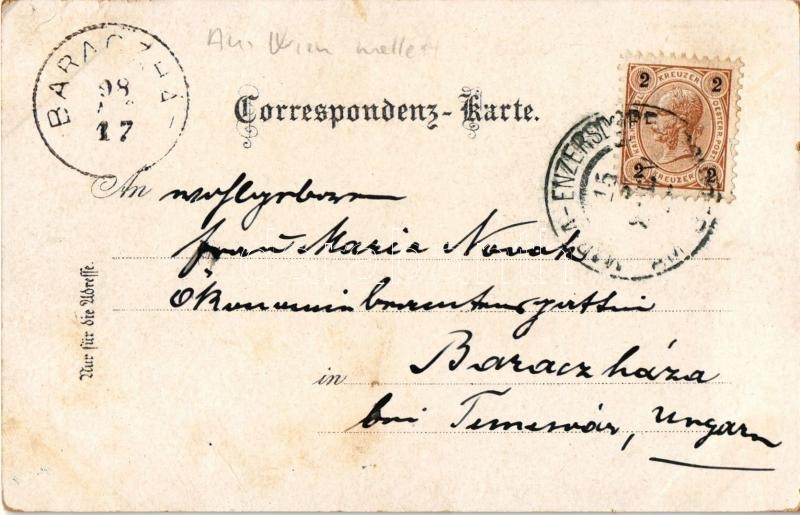 Aus Wien
BARACZHÁZA
98
17
Correspondenz-Karte.
2 KREUZER 2
2 KREUZER 2
MARIA-ENZERSDORF
15
An wohlgeboren
Frau Marie Novak
Ökonomiebeamtensgattin
in Baraczháza
bei Temesvár, Ungarn
Nur für die Adresse.